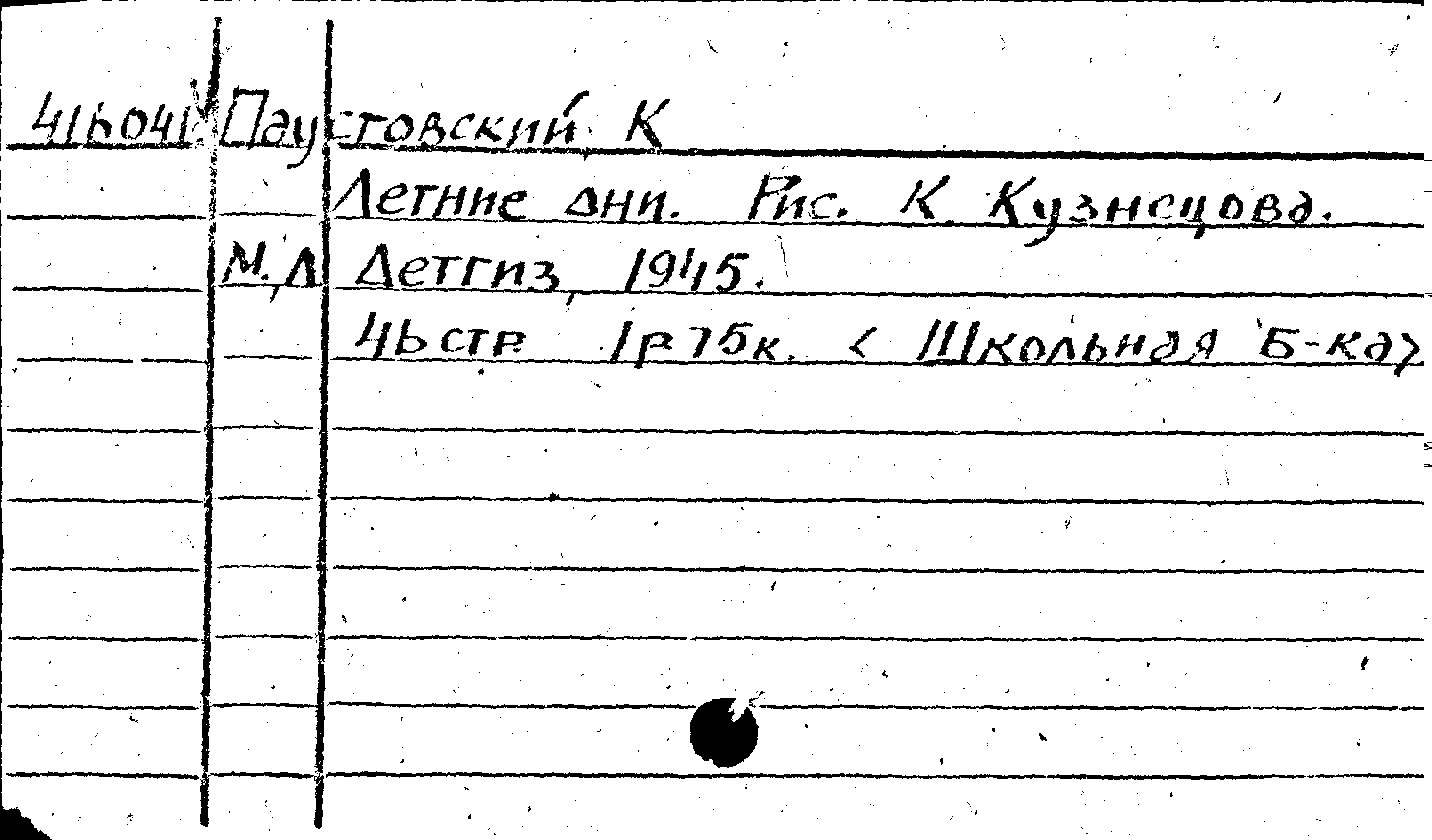 416041 Паустовский К
Летние дни. Рис. К. Кузнецова.
М.,Л Детгиз, 1945.
46 стр 1р 75к. < Школьная Б-ка>